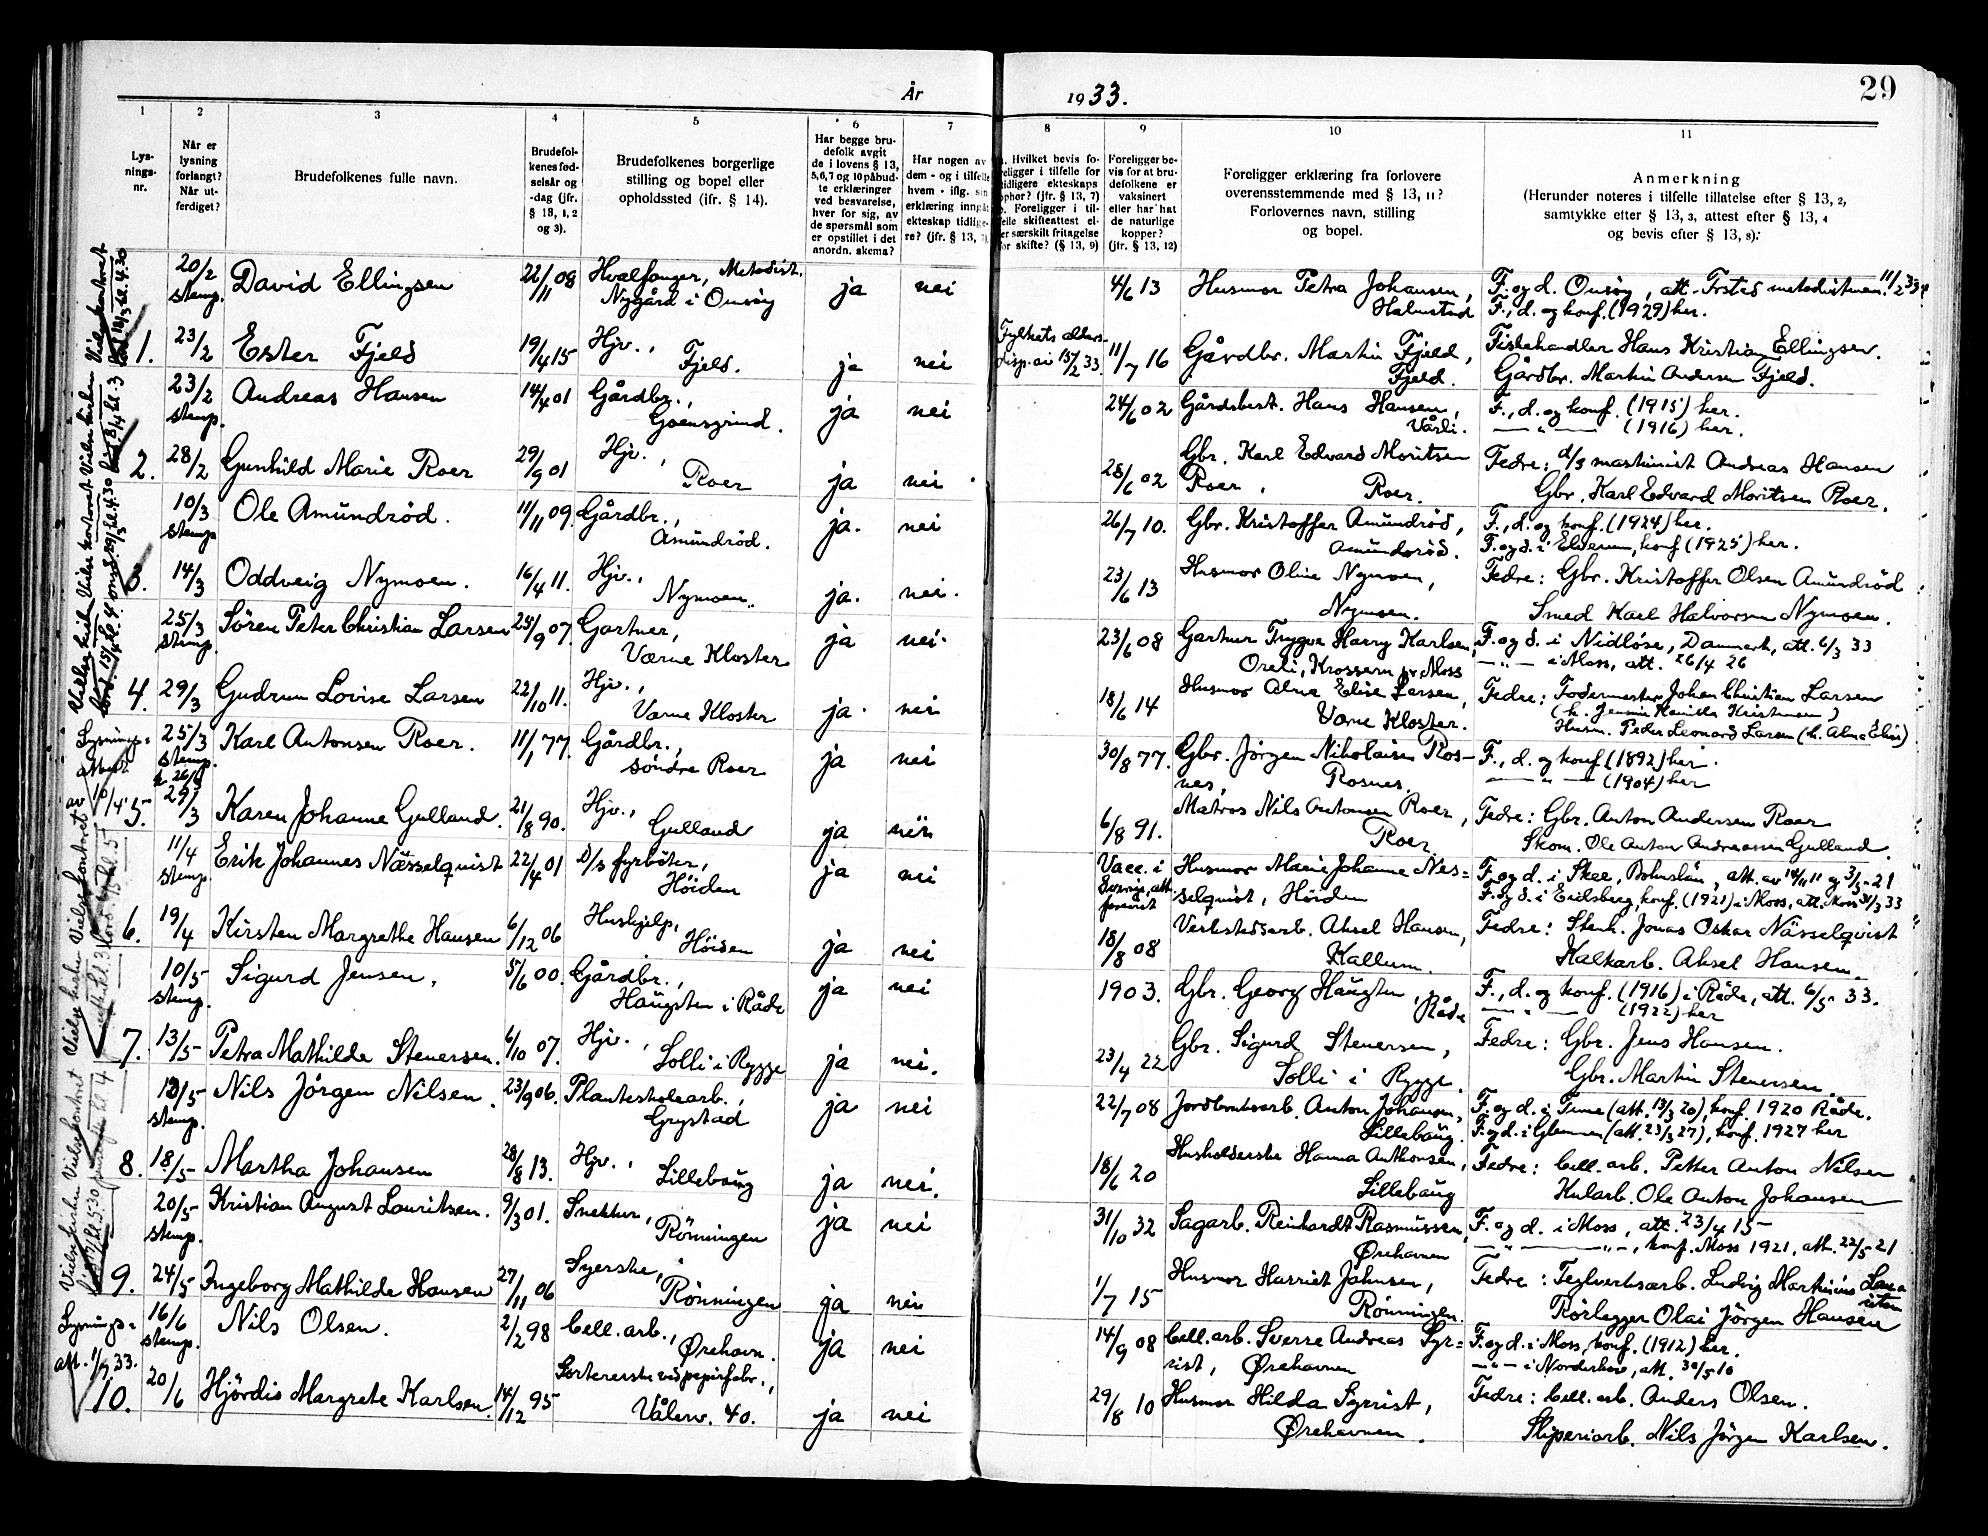 29
År
1933.
1
2
3
4
5
6
7
8
9
10
11
Lysnings-
nr.
Når er
lysning
forlangt?
Når ut-
ferdiget?
Brudefolkenes fulle navn.
Brudefol-
kenes fød-
selsår og
-dag (jfr.
§ 13, 1, 2
og 3).
Brudefolkenes borgerlige
stilling og bopel eller
opholdssted (ifr. § 14).
Har begge bru-
defolk avgit
de i lovens § 13,
5,6,7 og 10 påbud-
te erklæringer
ved besvarelse,
hver for sig, av
de spørsmål som
er opstillet i det
anordn. skema?
Har nogen av
dem - og i tilfelle
hvem - iflg. sin
erklæring inngåt
ekteskap tidlige-
re? (jfr. § 13, 7)
Hvilket bevis fo-
religger i tilfelle for
tidligere ekteskaps
ophør? (jfr. § 13, 7)
Foreligger i til-
felle skifteattest el-
er særskilt fritagelse
for skifte? (§ 13, 9)
Foreligger be-
vis for at bru-
defolkene er
vaksinert
eller har hat
de naturlige
kopper?
(jfr. § 13, 12)
Foreligger erklæring fra forlovere
overensstemmende med § 13, 11?
Forlovernes navn, stilling
og bopel.
Anmerkning
(Herunder noteres i tilfelle tillatelse efter § 13, 2,
samtykke efter § 13, 3, attest efter § 13, 4
og bevis efter § 13, 8).
20/2 stemp. David Ellingsen 22/11 08 Hvalfanger, Metodist. ja nei 4/6 13 Husmor Petra Johansen, F. og d. Onsøy, att. Frsted metodistmen. 11/2 33
Nygård i Onsøy Halmstad F., d. og konf. (1929) her.
1. 23/2 Ester Fjeld 19/4 15 Hjv., ja nei Fylkets alders- 11/7 16 Gårdbr. Martin Fjeld, Fiskehandler Hans Kristian Ellingsen.
Fjeld. disp. av 15/2 33. Fjeld. Gårdbr. Martin Andersen Fjeld.
23/2 stemp. Andreas Hansen 14/4 01 Gårdbr., ja nei 24/6 02 Gårdsbest. Hans Hansen, F., d. og konf. (1915) her.
Goensgrind. Vårli. — " — (1916) her.
2. 28/2 Gunhild Marie Roer 29/9 01 Hjv., ja nei 28/6 02 Gbr. Karl Edvard Moritsen Fedre: d/s maskinist Andreas Hansen
Roer Roer, Roer. Gbr. Karl Edvard Moritsen Roer.
10/3 stemp Ole Amundröd. 11/11 09. Gårdbr., ja. nei 26/7 10. Gbr. Kristoffer Amundröd, F., d. og konf. (1924) her.
Amundröd. Amundröd. F. og d. i Elverum, konf (1925) her.
3. 14/3 Oddveig Nymoen. 16/4 11. Hjv., ja. nei. 23/6 13 Husmor Oline Nymoen, Fedre: Gbr. Kristoffer Olsen Amundröd
Nymoen. Nymoen. Smed Karl Halvorsen Nymoen.
25/3 stemp. Sören Peter Christian Larsen 25/9 07. Gartner, ja nei. 23/6 08 Gartner Trygve Harry Karlsen, F. og d. i Nidløse, Danmark, att. 6/3 33
Værne Kloster Oreli, Krossern pr Moss — " — i Moss, att. 26/4 26
4. 29/3 Gudrun Lovise Larsen 22/10 11. Hjv., ja. nei 18/6 14 Husmor Alma Elise Larsen, Fedre: Fodermester Johan Christian Larsen
Værne Kloster Værne Kloster.
Husm. Peder Leonard Larsen (h. Alma Elise)
25/3 stemp. Karl Antonsen Roer. 11/1 77. Gårdbr., ja nei 30/8 77. Gbr. Jörgen Nikolaisen Ros- F., d. og konf (1892) her.
söndre Roer nes, Rosnes. — " — (1904) her
5. 29/3 Karen Johanne Gulland. 21/8 90. Hjv., ja nei 6/8 91. Matros Nils Antonsen Roer, Fedre: Gbr. Anton Andersen Roer
Gulland Roer Skom. Ole Anton Andreassen Gulland.
11/4 stemp Erik Johannes Nässelquist 22/4 01 D/s fyrböter, ja nei Vacc. i Husmor Marie Johanne Nes- F. og d. i Skee, Bohuslän, att. av 14/11 11 og 3/5-21
Höiden Sverige, att. forevist selquist, Höiden F. og d. i Eidsberg, konf. (1921) i Moss, att. Moss 31/3 33
6. 19/4 Kirsten Margrethe Hansen 6/12 06 Hushjelp, ja nei 18/8 08 Verkstedsarb. Aksel Hansen, Fedre: Stenh. Jonas Oskar Nässelqvist
Höiden Kallum. Kalkarb. Aksel Hansen.
10/5 stemp. Sigurd Jensen, 5/6 00. Gårdbr., ja nei 1903. Gbr. Georg Haugsten, F., d. og konf. (1916) i Råde, att. 6/5 33.
Haugsten i Råde Råde — " — (1922) her
7. 13/5 Petra Mathilde Stenersen. 6/10 07. Hjv., ja nei. 23/4 22 Gbr. Sigurd Stenersen, Fedre: Gbr. Jens Hansen.
Solli i Rygge Solli i Rygge. Gbr. Martin Stenersen.
13/5 stemp. Nils Jörgen Nilsen. 23/9 06. Planteskolearb., ja nei 22/7 08 Jordbruksarb. Anton Johansen, F. og d. i Tune (att. 13/3 20), konf. 1920 Råde.
Grystad Lillebaug. F. og d. i Glemmen (att. 23/3 27), konf. 1927 her
8. 18/5 Martha Johansen 28/8 13. Hjv., ja nei. 18/6 20 Husholderske Hanna Anthonsen, Fedre: Cell. arb. Petter Anton Nilsen
Lillebaug Lillebaug Kularb. Ole Anton Johansen
20/5 stemp. Kristian August Lauritsen. 9/3 01. Snekker, ja nei 31/10 32 Sagarb. Reinhardt Rasmussen, F. og d. i Moss, att. 23/4 15
Rönningen Ørehavnen — " —, konf. Moss 1921, att. 22/5-21
9. 24/5 Ingeborg Mathilde Hansen 27/11 06 Syerske, ja nei 1/7 15 Husmor Harriet Johnsen, Fedre: Teglverksarb. Ludvig Martinius Lau-
Rönningen Rönningen. Rörlegger Olai Jörgen Hansen
16/6 stemp. Nils Olsen. 2/2 98 Cell. arb., ja nei 14/9 08 Cell. arb. Sverre Andreas Syr- F. og d. i Moss, konf. (1912) her.
Ørehavn. rist, Ørehavnen — " — i Norderhov, att. 30/5 10
10. 20/6 Hjördis Margrete Karlsen. 14/12 95 Sortererske ved papirfabr., ja nei 29/8 10 Husmor Hilda Syrrist, Fedre: Cell. arb. Anders Olsen.
Vålerv. 40. Ørehavnen. Sliperiarb. Nils Jörgen Karlsen.